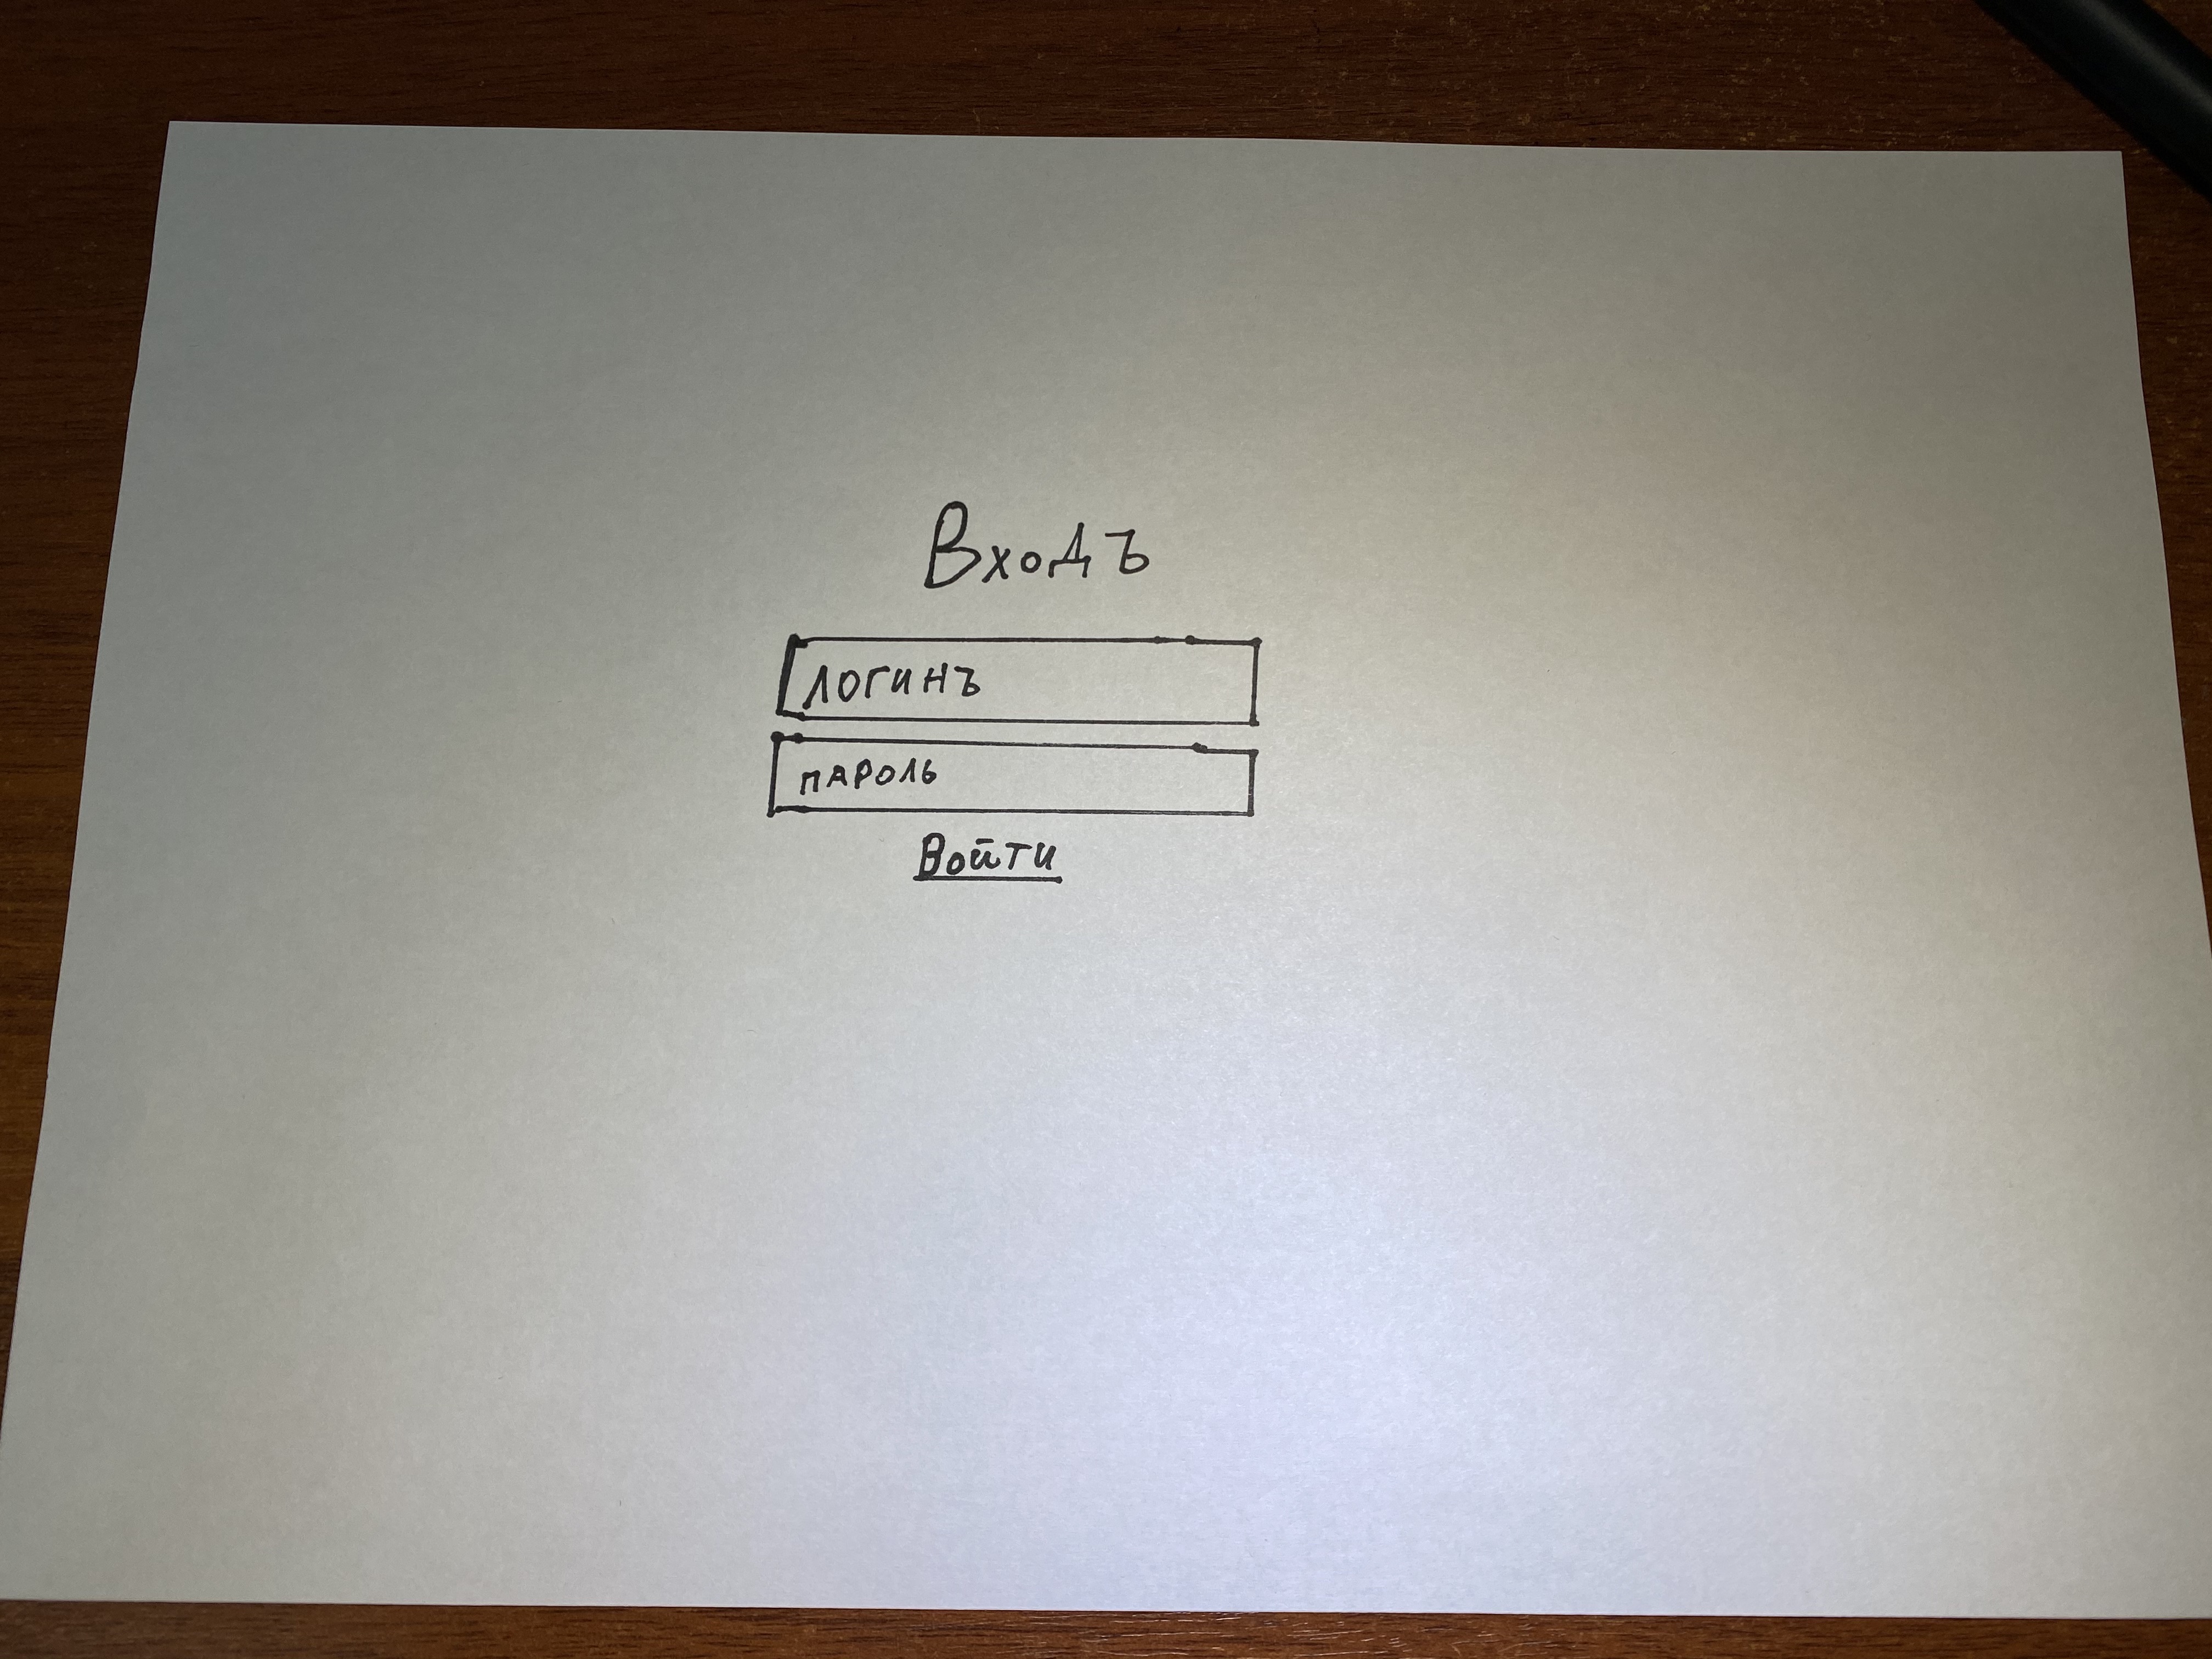 Входъ
логинъ
пароль
Войти